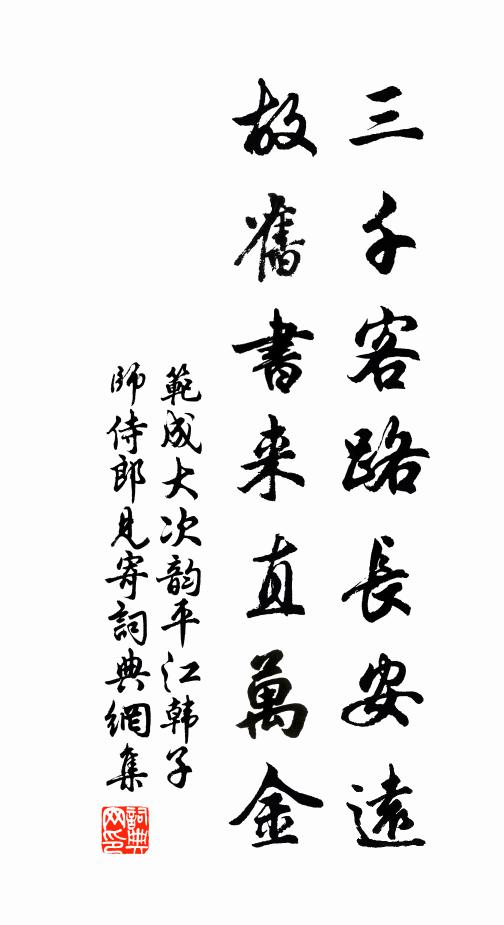 三千客路長安遠
故舊書来直萬金
範成大次韵平江韩子
師侍郎見寄詞典網集
詞典
网印